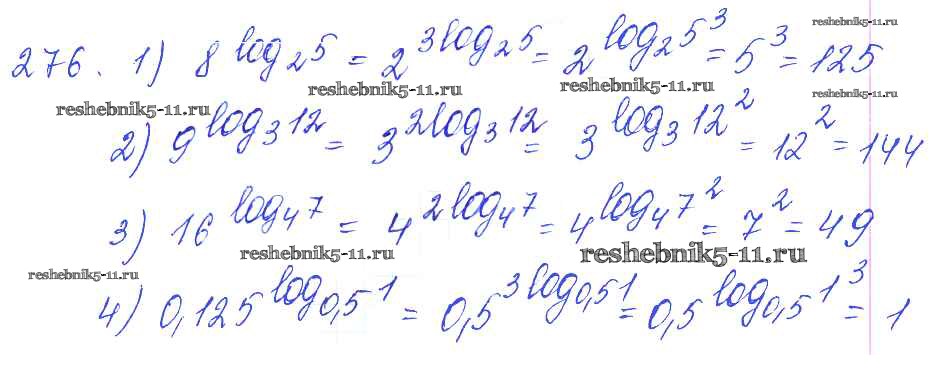 reshebnik5-11.ru
276. 1) 8^{log_2 5} = 2^{3log_2 5} = 2^{log_2 5^3} = 5^3 = 125
reshebnik5-11.ru reshebnik5-11.ru reshebnik5-11.ru reshebnik5-11.ru
2) 9^{log_3 12} = 3^{2log_3 12} = 3^{log_3 12^2} = 12^2 = 144
3) 16^{log_4 7} = 4^{2log_4 7} = 4^{log_4 7^2} = 7^2 = 49
reshebnik5-11.ru reshebnik5-11.ru
reshebnik5-11.ru
4) 0,125^{log_{0,5} 1} = 0,5^{3log_{0,5} 1} = 0,5^{log_{0,5} 1^3} = 1